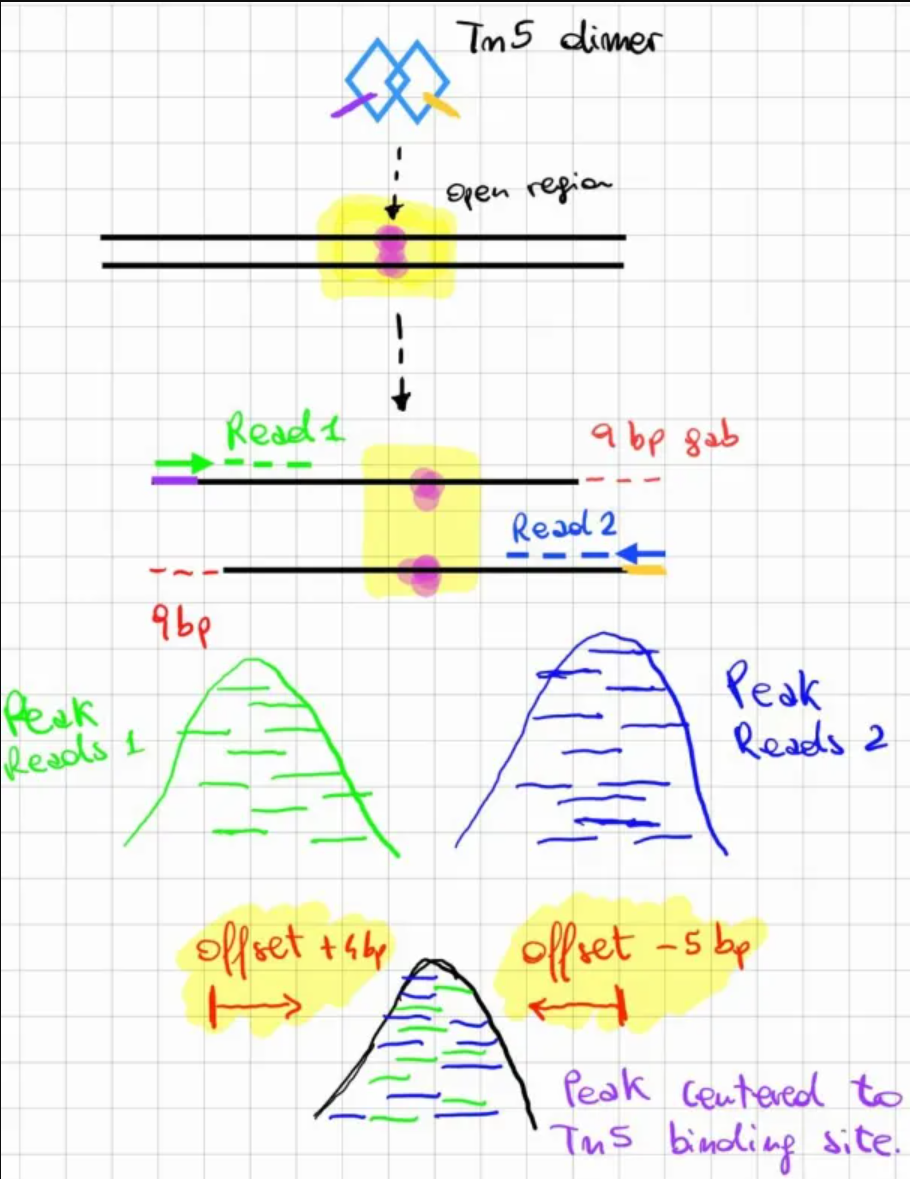 Tn5 dimer
open region
Read 1
9 bp gab
Read 2
9bp
Peak
Reads 1
Peak
Reads 2
offset +4bp
offset -5 bp
Peak centered to
Tn5 binding site.